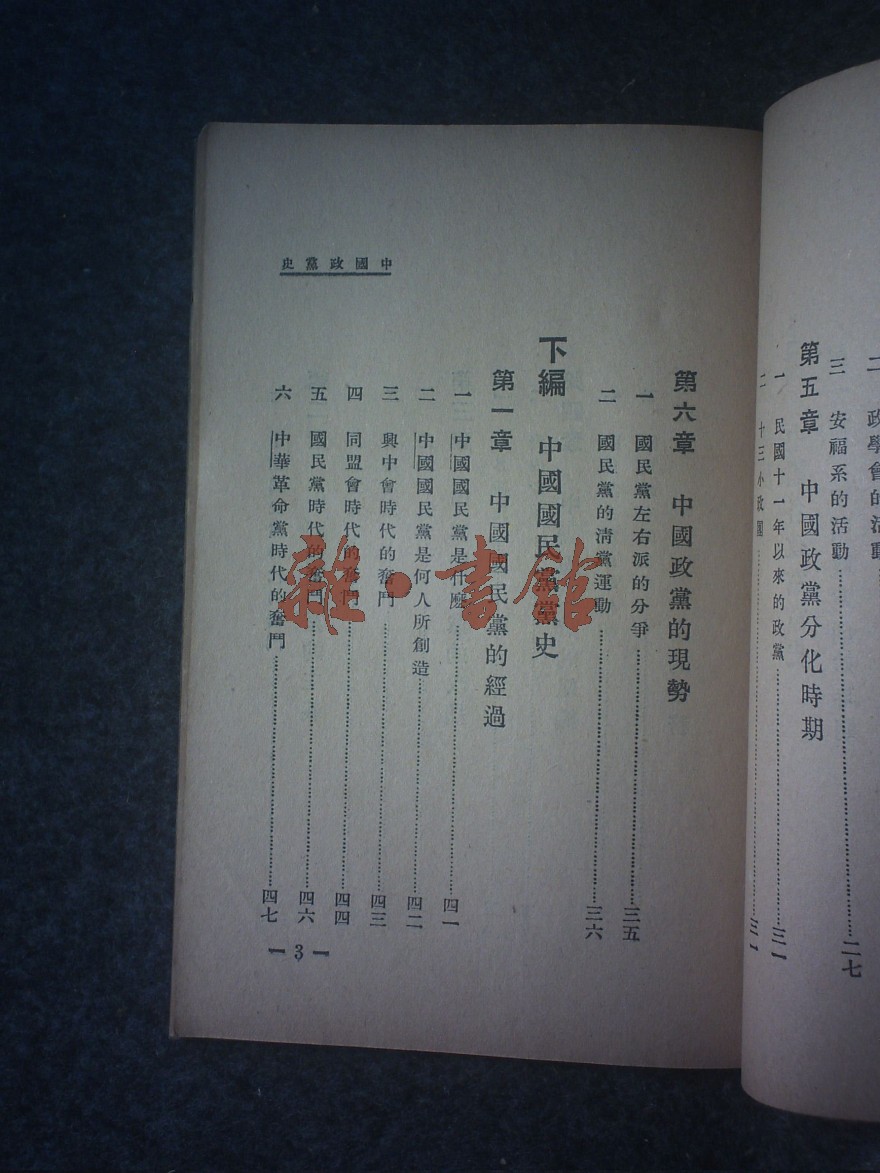 政學會的活動
三 安福系的活動……二七
第五章 中國政黨分化時期
一 民國十一年以來的政黨……三一
二 十三小政團……三一
史黨政國中
第六章 中國政黨的現勢
一 國民黨左右派的分爭……三五
二 國民黨的清黨運動……三六
下編 中國國民黨黨史
第一章 中國國民黨的經過
一 中國國民黨是什麽……四一
二 中國國民黨是何人所創造……四二
三 興中會時代的奮鬥……四三
四 同盟會時代的奮鬥……四四
五 國民黨時代的奮鬥……四六
六 中華革命黨時代的奮鬥……四七
— 3 —
雜·書館